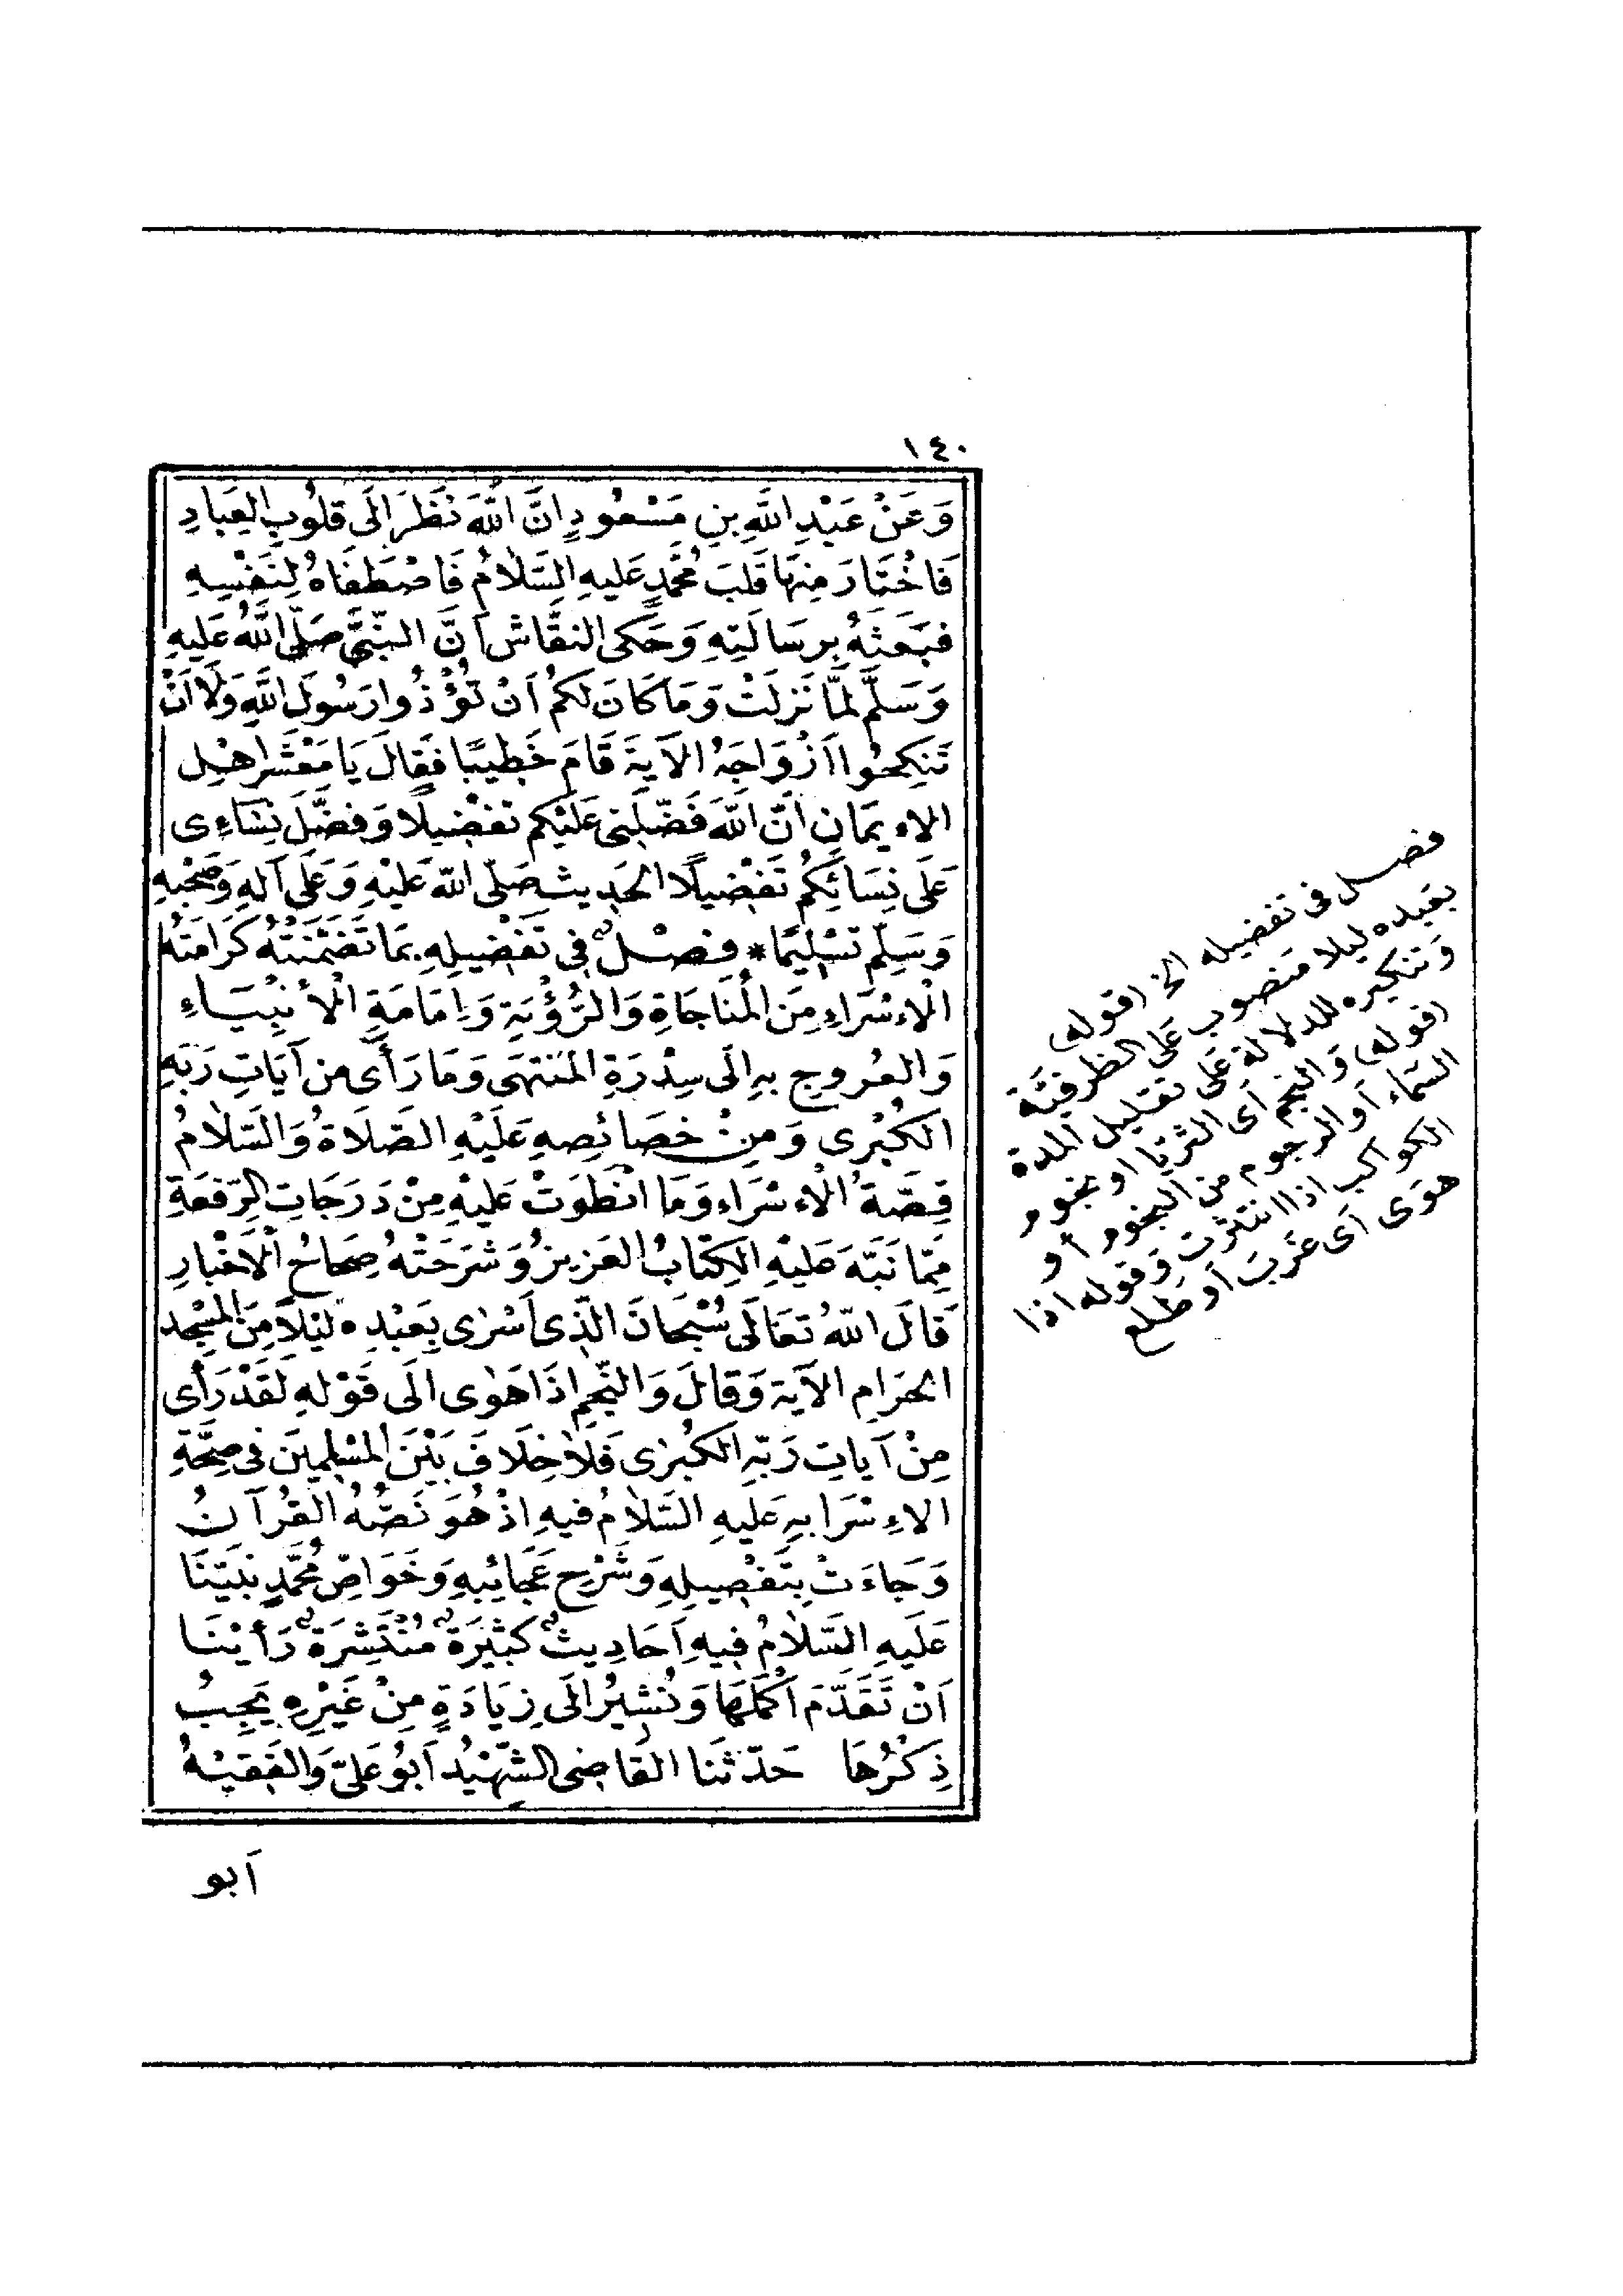 ١٤٠
وَعَنْ عَبْدِ اللَّهِ بنِ مَسْعُودٍ اِنَّ اللَّهَ نَظَرَ اِلَى قلُوبِ العِبَادِ
فَاخْتَارَ مِنهَا قَلبَ مُحَمَّدٍ عَليهِ السَّلَامُ فَاصْطَفَاهُ لِنَفْسِهِ
فبَعَثَهُ برِسَالَتِهِ وَحَكى النقَّاش اَنَّ النبِّيَّ صَلَّى اللَّهُ عَلَيهِ
وَسَلَّم لمَّا نَزلَتْ وَمَا كَانَ لكُمْ اَنْ تُؤْذُوا رَسُولَ اللَّهِ وَلَا اَنْ
تَنكِحُوا اَزْوَاجَهُ الآيَةَ قَامَ خَطِيبًا فَقَالَ يَا مَعْشَرَ اهْلِ
الاءِيمَانِ اَنَّ اللَّهَ فَضّلَنِى عَلَيْكم تفْضِيلًا وَفضَّلَ نِسَاءِى
عَلَى نِسَائِكُم تَفضْيلًا الحَدِيث صَلَّى اللَّه عَلَيْهِ وَعَلَى آلهِ وَصَحْبهِ
وَسَلِّم تَسْلِيمًا * فصْلٌ فِى تَفْضِيلِهِ بمَا تَضَمَّنَتْهُ كَرَامَتُهُ
الْاءسْرَاءِ مِنَ الْمُنَاجَاةِ وَالرُّؤْيَةِ وَاِمَامَةِ الْأَنْبِيَاءِ
وَالعُروجِ بهِ اِلَى سِدْرَةِ المُنتَهَى وَمَا رَأَى مِن آيَاتِ رَبِّهِ
الكُبْرى وَمِنْ خصَائِصِهِ عَلَيْهِ الصَّلَاةُ وَالسَّلَامُ
قِصَّةُ الْاءسْرَاءِ وَمَا انْطَوَتْ عَلَيْهِ مِنْ دَرَجَاتِ الرِّفعَةِ
مِمّا نَبَّهَ عَليْهِ الكِتَابُ العَزيزُ وَشَرَحَتْهُ صِحَاحُ الْاَخْبَارِ
قَالَ اللَّهُ تعَالَى سُبْحَانَ الَّذِى اَسْرٰى بِعَبْدِه لَيْلًا مِنَ المَسْجِد
الحَرَامِ الآيَة وَقالَ وَالنَّجمِ اذَا هَوٰى الَى قَوْلهِ لَقَدْ رَأى
مِنْ آيَاتِ رَبِّهِ الكُبْرٰى فَلَا خِلَافَ بَيْنَ المُسْلِمِينَ فِى صِحَّةِ
الاءِسْرَا بهِ عَلَيهِ السَّلَامُ فيهِ اذْ هُوَ نَصُّهُ القُرآنُ
وَجَاءَتْ بِتَفْصِيلِهِ وَشَرْحِ عَجَائِبهِ وَخَوَاصِّ مُحَمَّدٍ نَبيِّنَا
عَلَيهِ السَّلَامُ فِيهِ اَحَادِيثٌ كثيْرَةٌ مُنْتَشِرَةٌ رَأيْنَا
اَنْ نَقدّمَ اَكْمَلَهَا وَنُشِيرُ الَى زِيَادَةٍ مِنْ غَيْرِه يَجِبُ
ذِكْرُهَا حَدّثَنا القَاضِى الشَّهيْدُ اَبُو عَلىّ وَالفَقيْهُ
اَبو
فصل فى تفضيله الخ (قوله)
بعبده ليلا منصوب على الظرفيَّة
وتنكيره للدلالة على تقليل المدة
(قوله) والنجم أى الثريَّا او نجوم
السَّماء او الرجوم من النجوم أو
الكواكب اذا انتثرت وقوله اذا
هوَى أى غرَب او طلع